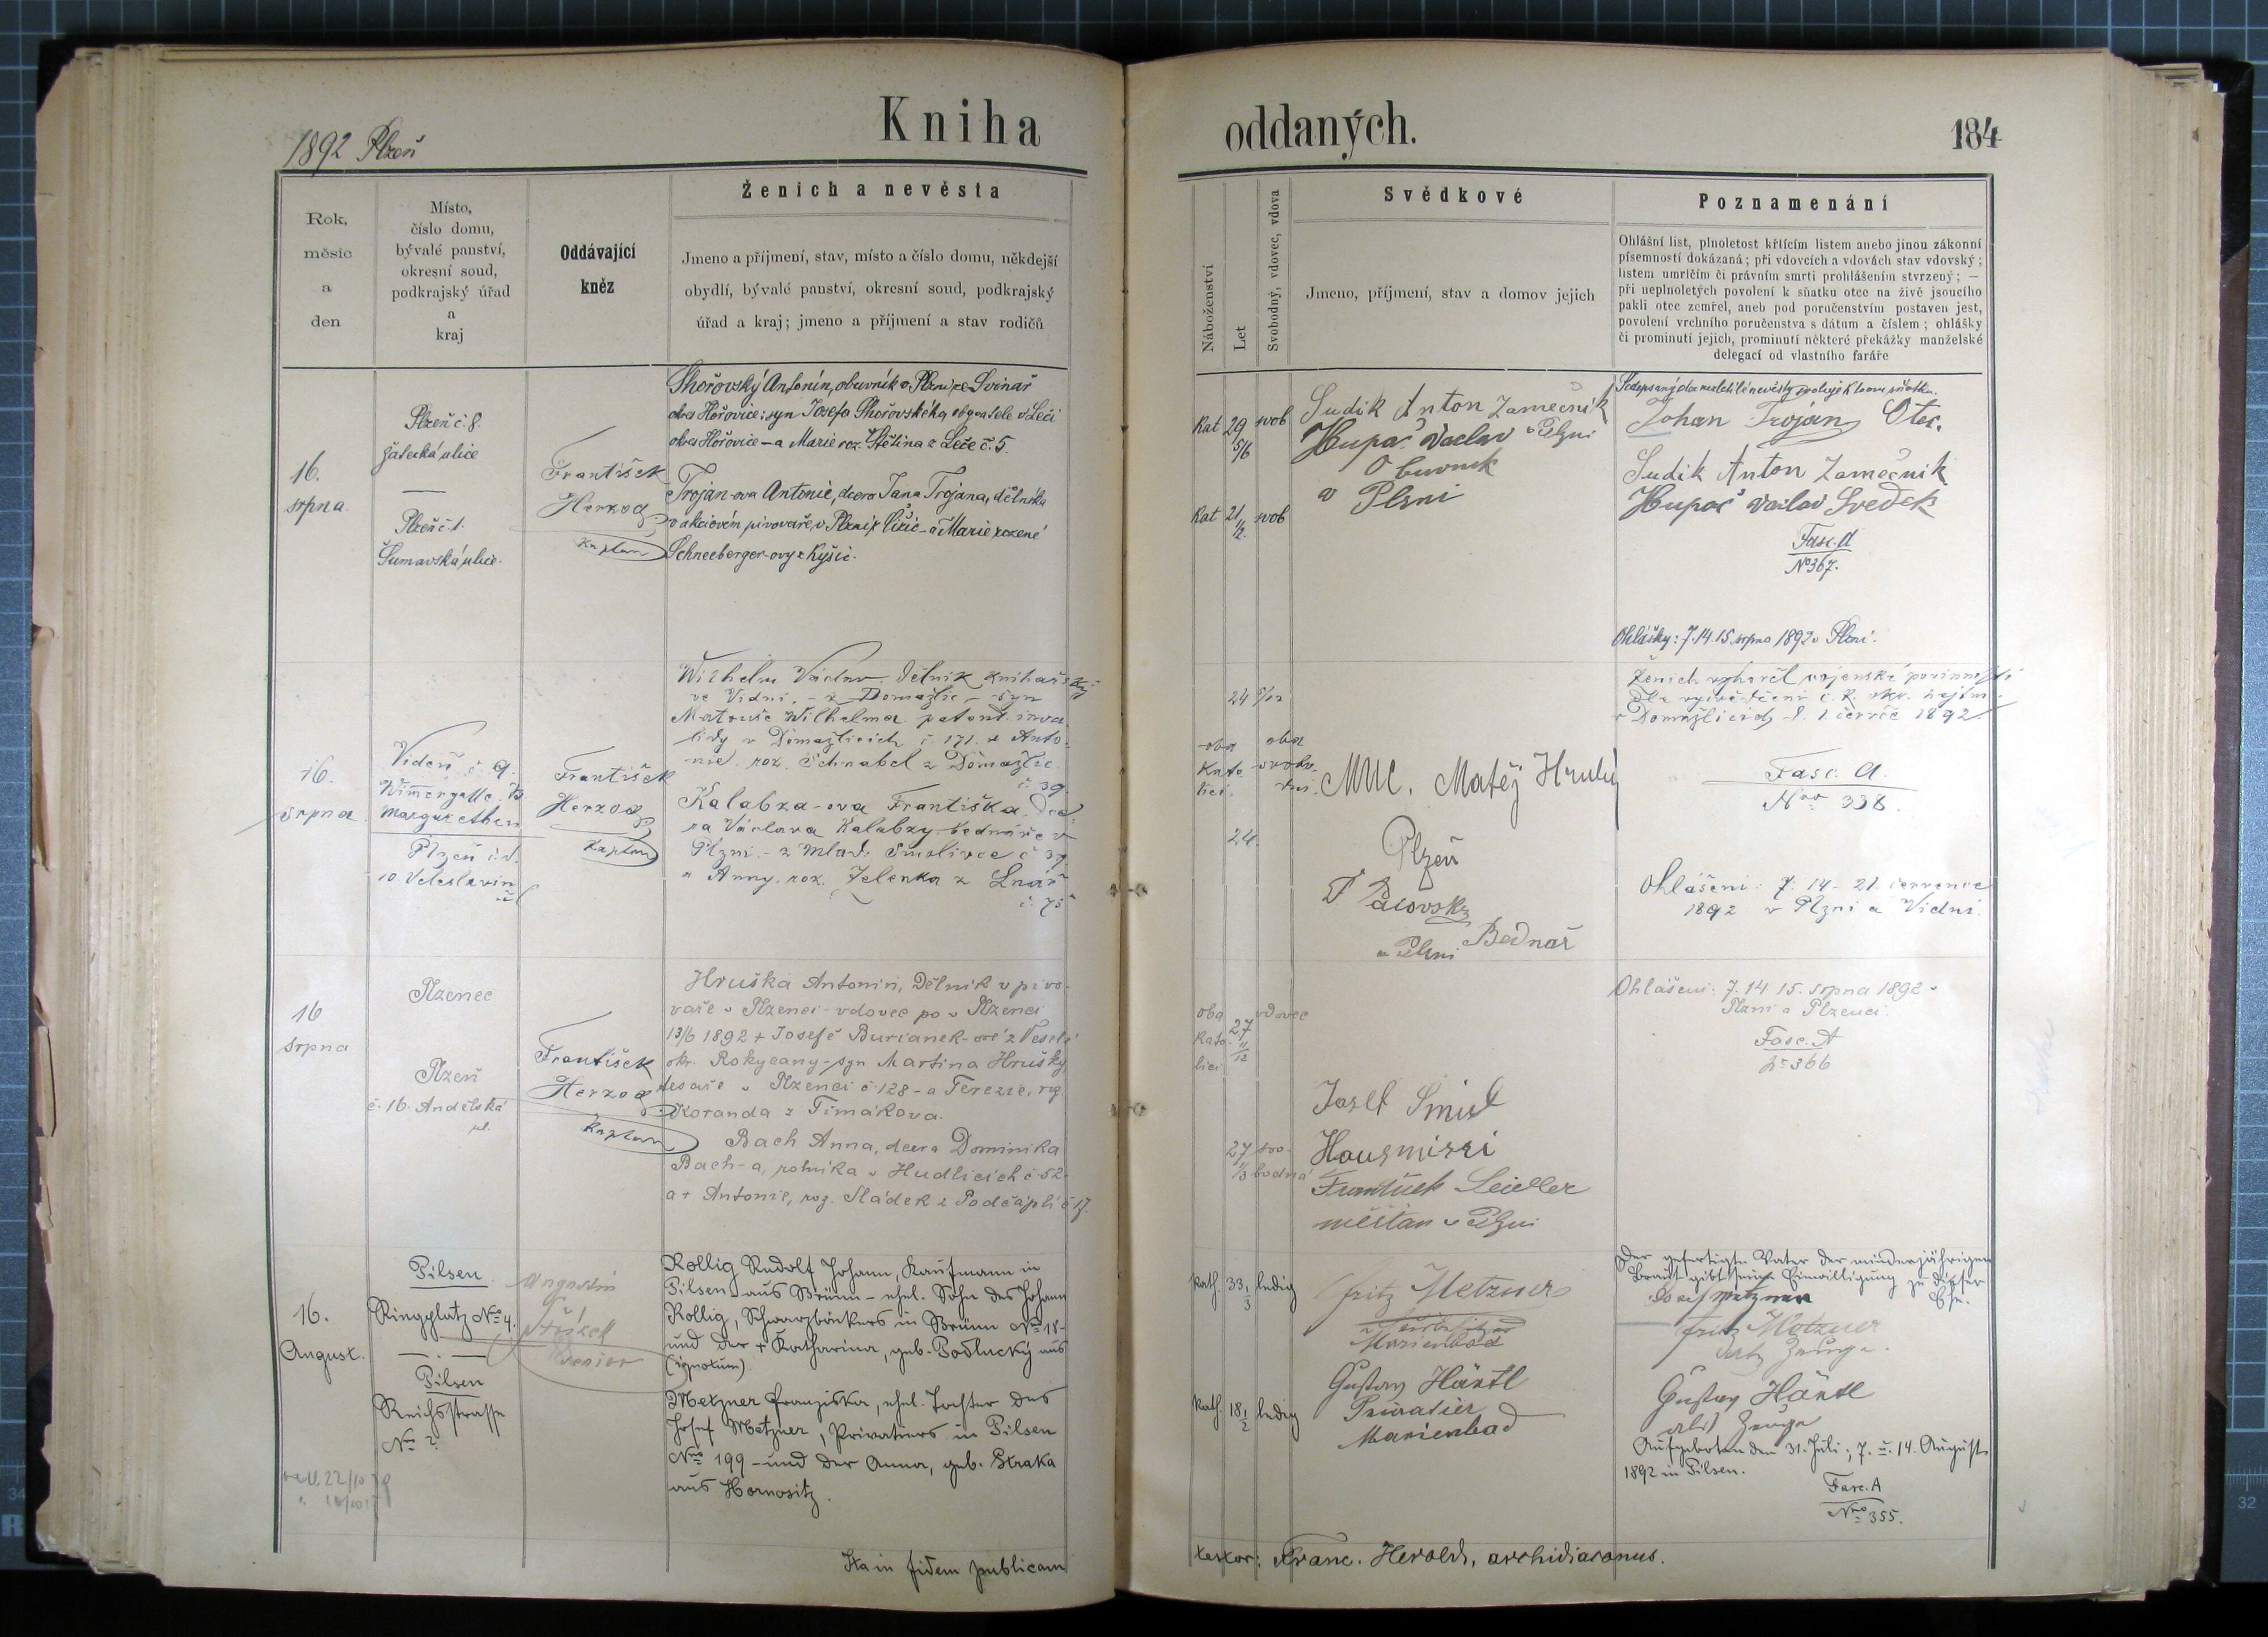 1892 Plzeň
Kniha
oddaných.
184
Rok,
měsíc
a
den
Místo,
číslo domu,
bývalé panství,
okresní soud,
podkrajský úřad
a
kraj
Oddávající
kněz
Ženich a nevěsta
Jmeno a příjmení, stav, místo a číslo domu, někdejší
obydlí, bývalé panství, okresní soud, podkrajský
úřad a kraj; jmeno a příjmení a stav rodičů
Náboženství
Let
Svobodný, vdovec, vdova
Svědkové
Jmeno, příjmení, stav a domov jejich
Poznamenání
Ohlášní list, plnoletost křtícím listem anebo jinou zákonní
písemností dokázaná; při vdovcích a vdovách stav vdovský;
listem umrlčím či právním smrti prohlášením stvrzený; —
při neplnoletých povolení k sňatku otce na živě jsoucího
pakli otec zemřel, aneb pod poručenstvím postaven jest,
povolení vrchního poručenstva s dátum a číslem; ohlášky
či prominutí jejich, prominutí některé překážky manželské
delegací od vlastního faráře
16.
srpna
Plzeň č. 8.
žatecká ulice
Plzeň č. 1.
Šumavská ulice.
František
Herzog
Kaplan
Antonín, obuvník v Plzni, ze Svinař
okres Hořovice: syn Josefa
okres Hořovice – a Marie roz. z Leče č. 5.
Trojan-ova Antonie, dcera Jana Trojana, dělníka
v akciovém pivovaře v Plzni – a Marie rozené
Schneeberger-ovy z Kyšic.
Kat 29 svob
5/6
Kat 21 svob
1/2.
Sudik Anton Zamečnik
v Plzni
Hupač Vaclav
Obuvnik
v Plzni
Johan Trojan Otec.
Sudik Anton Zamečnik
Hupač Vaclav Svedek
Fasc. A
No 367.
Ohlášky: 7. 14. 15 srpna 1892 v Plzni.
16.
srpna
Vídeň č. 9.
Margarethen
Plzeň č. d.
10 Veleslavín
František
Herzog
Kaplan
Wilhelm Václav, dělník knihařský
ve Vídni, – z Domažlic – syn
Matouše Wilhelma patent. inva-
lidy v Domažlicích č. 171. a Anto-
nie roz. Schnabel z Domažlic
č. 39.
Kalabza-ova Františka, dce-
ra Václava Kalabzy, bednáře v
Plzni – z Mlad. Smolivce č 39
a Anny, roz. Jelenka z Lnář
č. 75
24 5/12
oba
Kato-
líci.
oba
svobo-
dni.
24.
MUC. Matěj Hrubý
Plzeň
Pacovský
Bednář
v Plzni
Ženich vyhověl vojenské povinnosti
dle vysvědčení c. k. okr. hejtm.
v Domažlicích d. 1 července 1892.
Fasc. A.
Nro 338.
Ohlášení: 7. 14 – 21. července
1892 v Plzni a Vídni.
16
srpna
Plzenec
Plzeň
č. 16. Andělská
ul.
František
Herzog
Kaplan
Hruška Antonin, Dělnik v pivo-
vaře v Plzenci – vdovec po v Plzenci
13/6 1892 + Josefě Burianek-ové z Veselé
okr. Rokycany – syn Martina Hrušky,
tesaře v Plzenci č 128 – a Terezie, roz.
Koranda z Timákova.
Bach Anna, dcera Dominika
Bach-a, rolníka v Hudlicích č 52
a + Antonie, roz. Sládek z Podčáplí č 17.
oba
kato-
líci
27
11/12
vdovec
27
1/3
svo-
bodná
Josef Smid
František Seidler
měštan v Plzni
Ohlášení: 7. 14. 15. srpna 1892 v
Plzni a Plzenci.
Fasc. A
č 366
16.
August.
Pilsen
Ringplatz No 4.
Pilsen
Reichsstrasse
No 2.
Kollig Rudolf Johann, Kaufmann in
Pilsen – aus Brünn – ehel. Sohn des Johann
Kollig, Schwarzbäckers in Brünn No 18 –
und der + Katharina, geb. Podlucký aus
(ignotum).
Metzner Franziska, ehel. Tochter des
Josef Metzner, Privatiers in Pilsen
No 199 – und der Anna, geb. Straka
aus Hornositz.
Kath. 33 1/3 ledig
Kath. 18 1/2 ledig
Fritz Metzner
Marienbad
Gustav Härtl
Privatier
Marienbad
Der gefertigte Vater der minderjährigen
Braut gibt seine Einwilligung zu dieser
Ehe.
Josef Metzner
Fritz Metzner
als Zeuge.
Gustav Härtl
als Zeuge
Aufgeboten den 31. Juli; 7. u. 14. August
1892 in Pilsen.
Fasc. A
Nro 355.
Ita in fidem publicam
testor: Franc. Herold, archidiaconus.